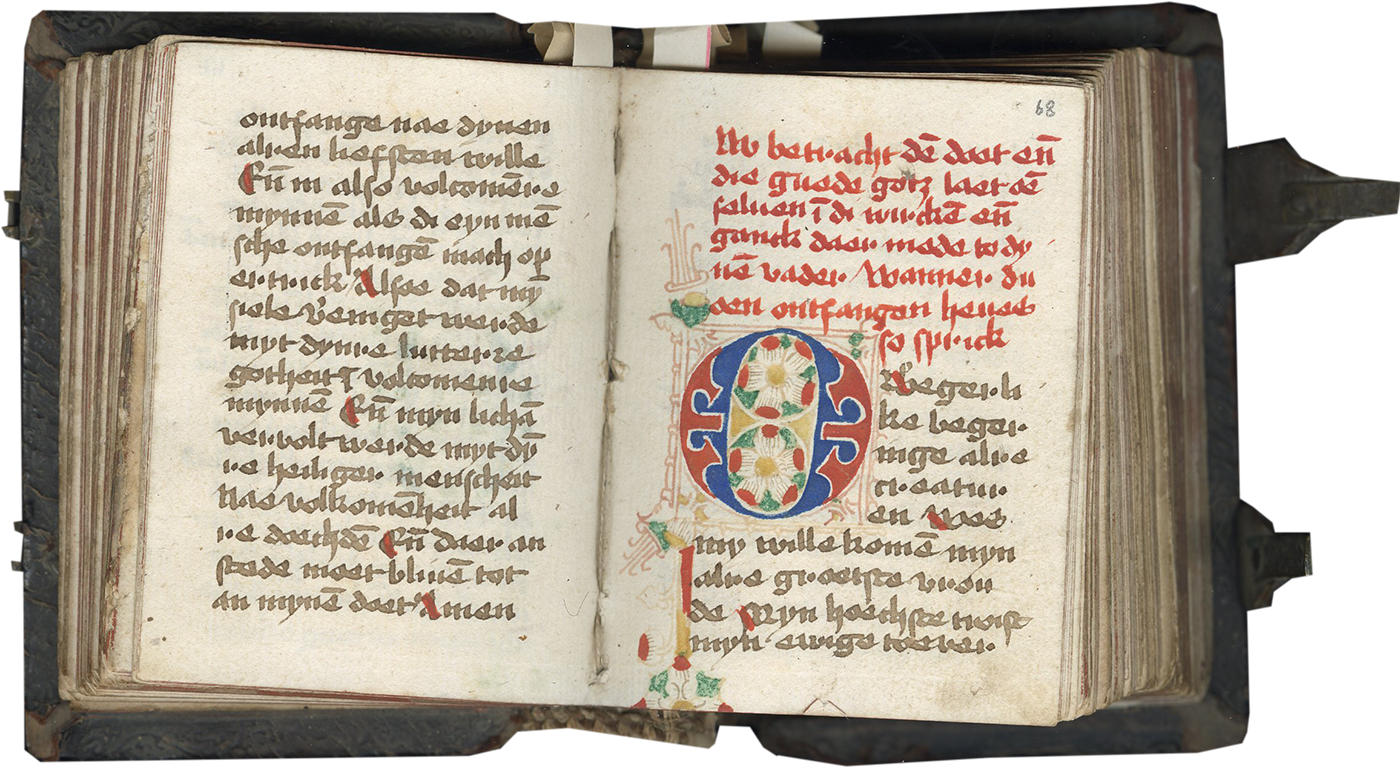 ontfange nae dynen
alren liefsten wille
Eñ in also volcomēre
mynnē als di eyn mē
sche ontfangē mach op
ertrick Alsoe dat mȳ
siele verniget werde
myt dynre lutterre
gotheit volcomenre
mynnē Eñ myn lichā
vervolt werde myt dȳ
re heiliger menscheit
Nae volkomēheit al
re doechdē Eñ daer an
stede moet bliuē tot
an mynē doet Amen
68
Nv betracht dē doet eñ
die guede gotz laet oē
seluen ī di wirckē eñ
ganck daer mede to dy
nē vader Wanner du
oen ontfangen heues
so sprick
O Begerli
ke beger
inge alre
creatur
en Wes
my wille komē myn
alre groetste vrou
de Myn hoechste troist
myn ewige toever